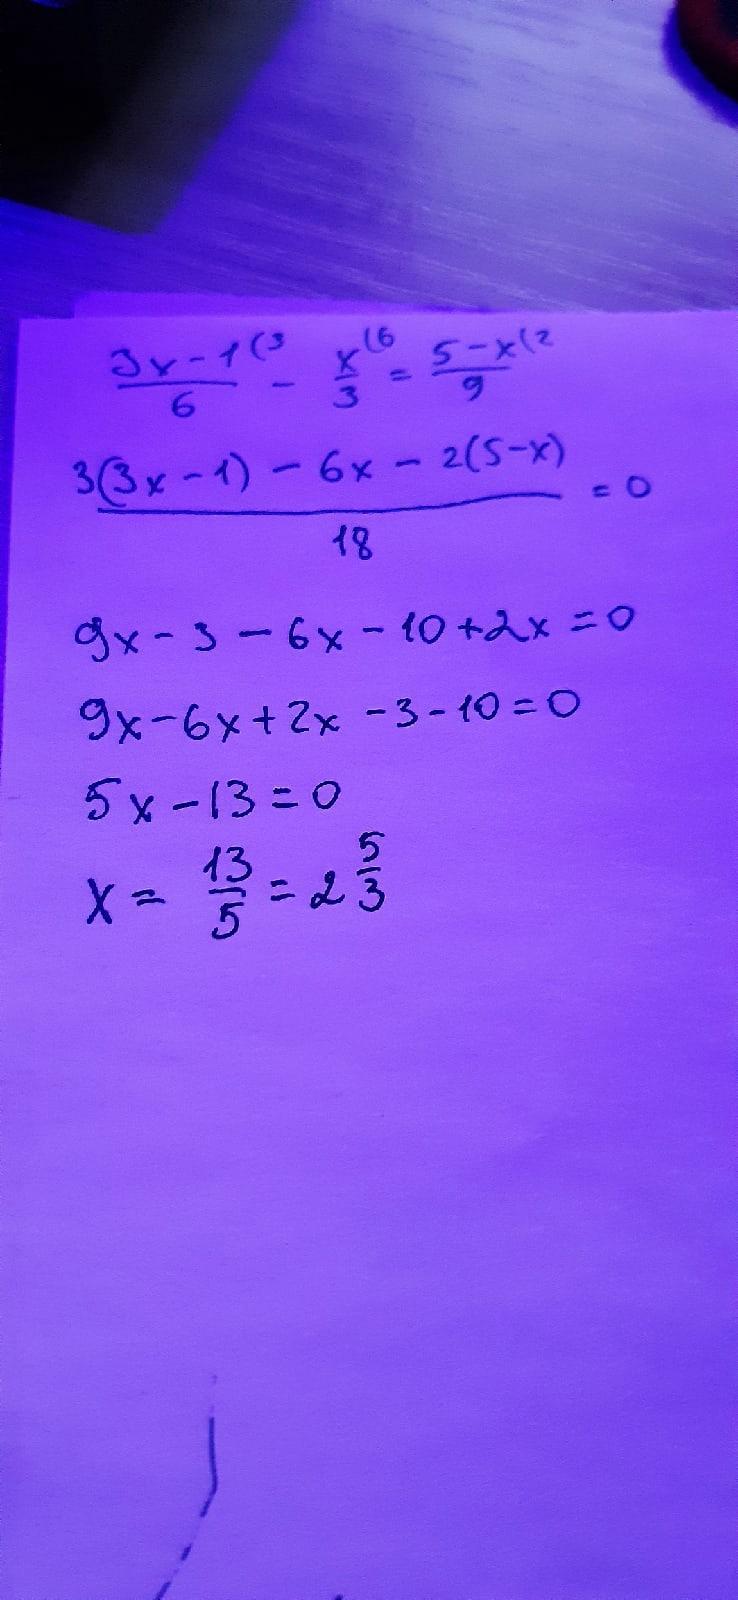 3x-1(3/6 - x(6/3 = 5-x(2/9
3(3x-1) - 6x - 2(5-x)/18 = 0
9x-3-6x-10+2x=0
9x-6x+2x-3-10=0
5x-13=0
x = 13/5 = 2 5/3